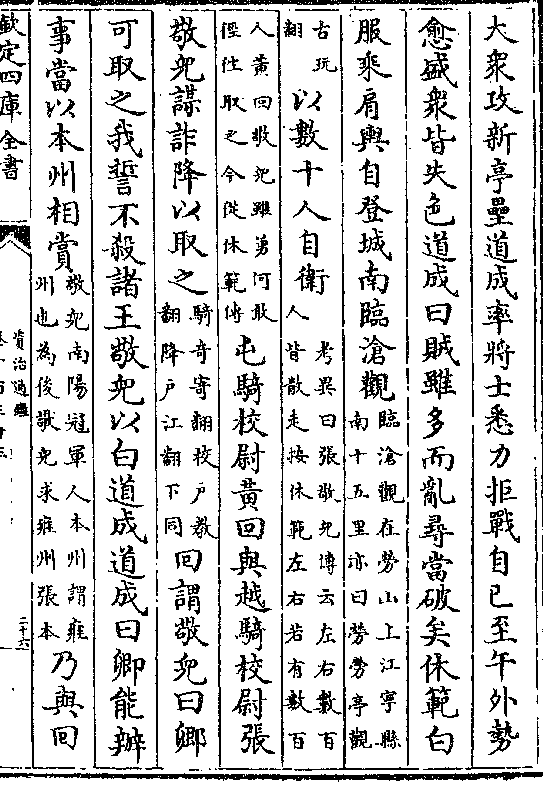 大衆攻新亭壘道成率將士悉力拒戰自巳至午外勢
愈盛衆皆失色道成曰賊雖多而亂尋當破矣休範白
服乘肩輿自登城南臨滄觀臨滄觀在勞山上江寧縣南十五里亦曰勞勞亭觀
古玩翻以數十人自衛考異曰張敬兒傳云左右數百人皆散走按休範左右若有數百
人黃回敬兒雖勇何敢徑往取之今從休範傳屯騎校尉黃回與越騎校尉張
敬兒謀詐降以取之騎奇寄翻校户教翻降户江翻下同回謂敬兒曰卿
可取之我誓不殺諸王敬兒以白道成道成曰卿能辦
事當以本州相賞敬兒南陽冠軍人本州謂雍州也為後敬兒求雍州張本乃與回
欽定四庫全書
資治通鑑
卷一百三十三
二十六